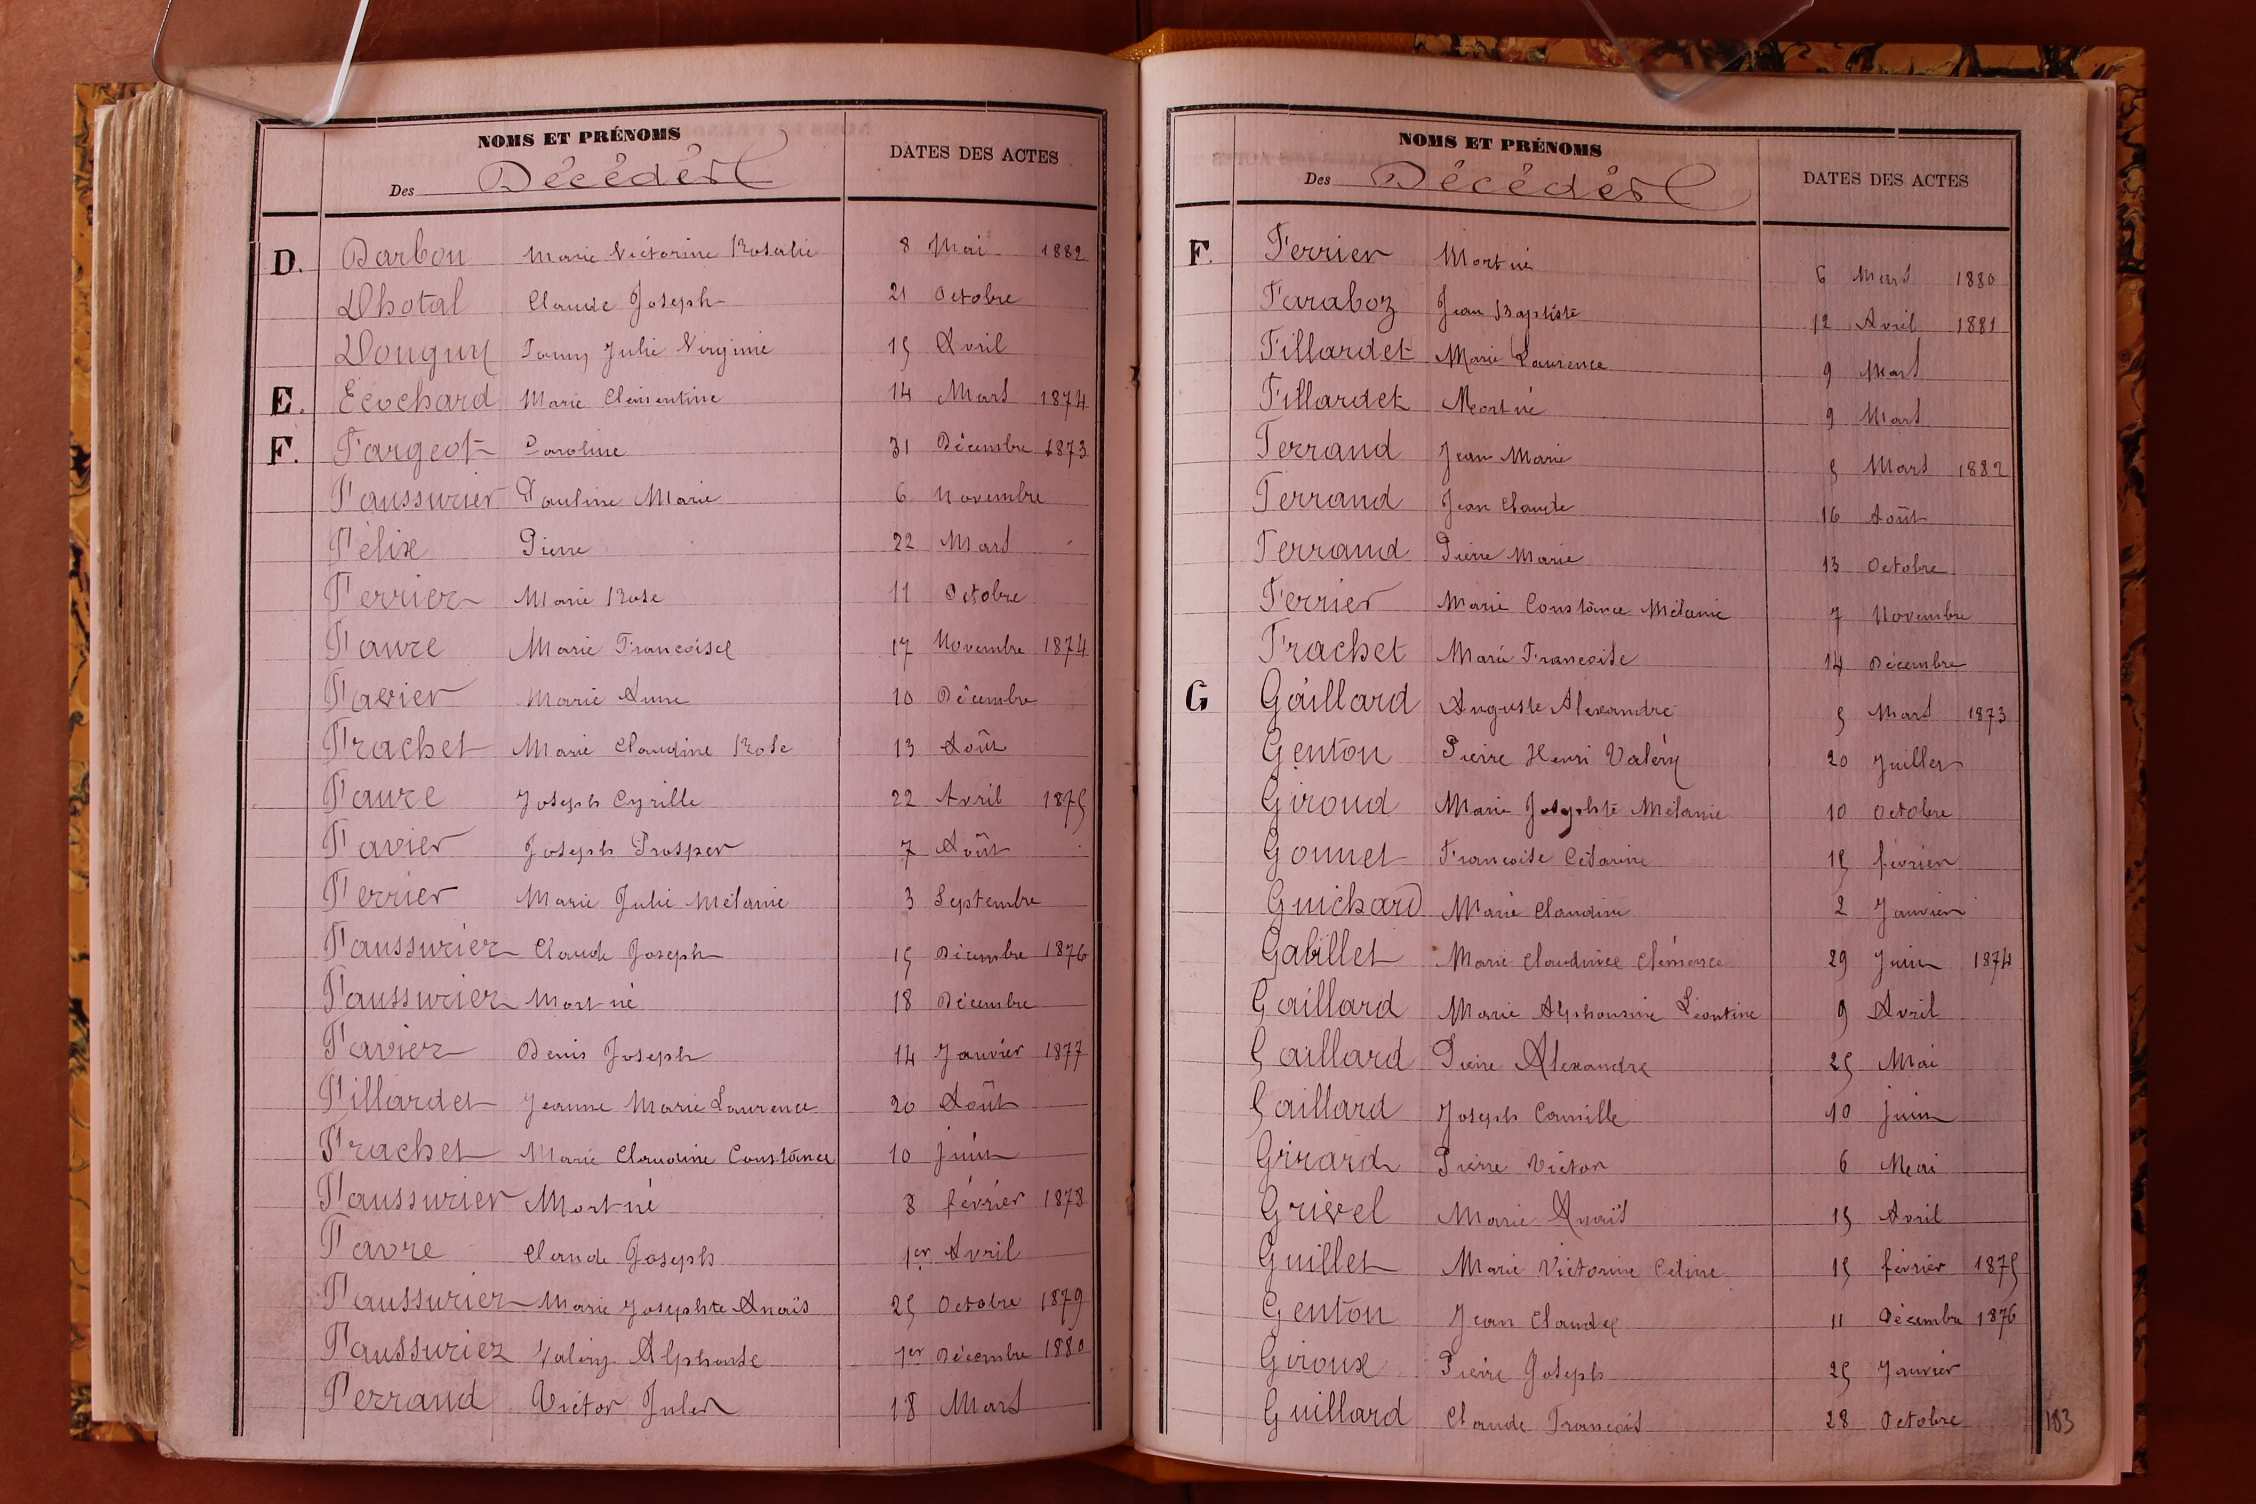 NOMS ET PRÉNOMS
DATES DES ACTES
Des Décédés
D. Darbon Marie Victorine Rosalie 8 Mai 1882
Dhotal Claude Joseph 21 Octobre
Douguy Fanny Julie Virginie 15 Avril
E. Ecochard Marie Clémentine 14 Mars 1874
F. Fargeot Caroline 31 Décembre 1873
Faussurier Pauline Marie 6 Novembre
Félix Pierre 22 Mars
Ferrier Marie Rose 11 Octobre
Favre Marie Françoise 17 Novembre 1874
Favier Marie Anne 10 Décembre
Frachet Marie Claudine Rose 13 Août
Favre Joseph Cyrille 22 Avril 1875
Favier Joseph Prosper 7 Août
Ferrier Marie Julie Mélanie 3 Septembre
Faussurier Claude Joseph 15 Décembre 1876
Faussurier Mort né 18 Décembre
Favier Denis Joseph 14 Janvier 1877
Fillardet Jeanne Marie Laurence 20 Août
Frachet Marie Claudine Constance 10 Juin
Faussurier Mort né 8 février 1878
Favre Claude Joseph 1er Avril
Faussurier Marie Josephte Anaïs 25 Octobre 1879
Faussurier Valéry Alphonse 1er Décembre 1880
Ferrand Victor Jules 18 Mars
NOMS ET PRÉNOMS
DATES DES ACTES
Des Décédés
F. Ferrier Mort né 6 Mars 1880
Faraboz Jean Baptiste 12 Avril 1881
Fillardet Marie Laurence 9 Mars
Fillardet Mort né 9 Mars
Ferrand Jean Marie 5 Mars 1882
Ferrand Jean Claude 16 Août
Ferrand Pierre Marie 13 Octobre
Ferrier Marie Constance Mélanie 7 Novembre
Frachet Marie Françoise 14 Décembre
G Gaillard Auguste Alexandre 5 Mars 1873
Genton Pierre Henri Valéry 20 Juillet
Giroud Marie Josephte Mélanie 10 Octobre
Gonnet Françoise Césarine 15 février
Guichard Marie Claudine 2 Janvier
Gabillet Marie Claudine Clémence 29 Juin 1874
Gaillard Marie Alphonsine Léontine 9 Avril
Gaillard Pierre Alexandre 25 Mai
Gaillard Joseph Camille 10 Juin
Girard Pierre Victor 6 Mai
Grivel Marie Anaïs 15 Avril
Guillet Marie Victorine Céline 15 février 1875
Genton Jean Claude 11 Décembre 1876
Giroux Pierre Joseph 25 Janvier
Guillard Claude François 28 Octobre
183